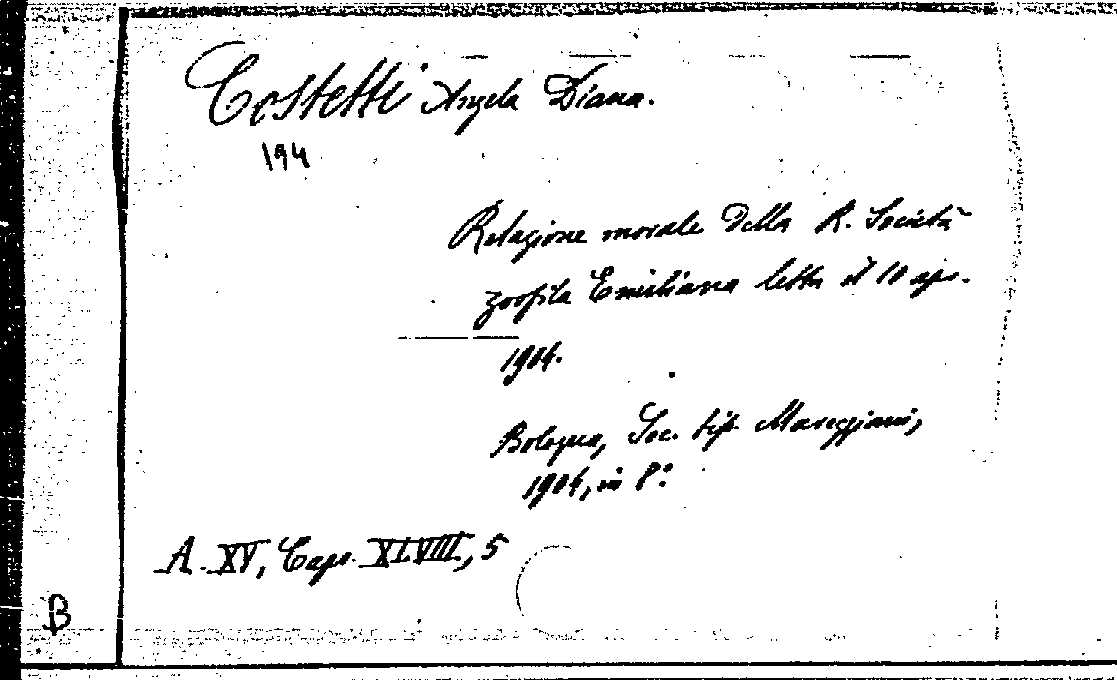 Costetti Angela Diana.
194
Relazione morale della R. Società
zoofila Emiliana letta il 10 apr.
1904.
Bologna, Soc. tip. Mareggiani,
1904, in 8°.
A. XV, Caps. XLVIII, 5
B